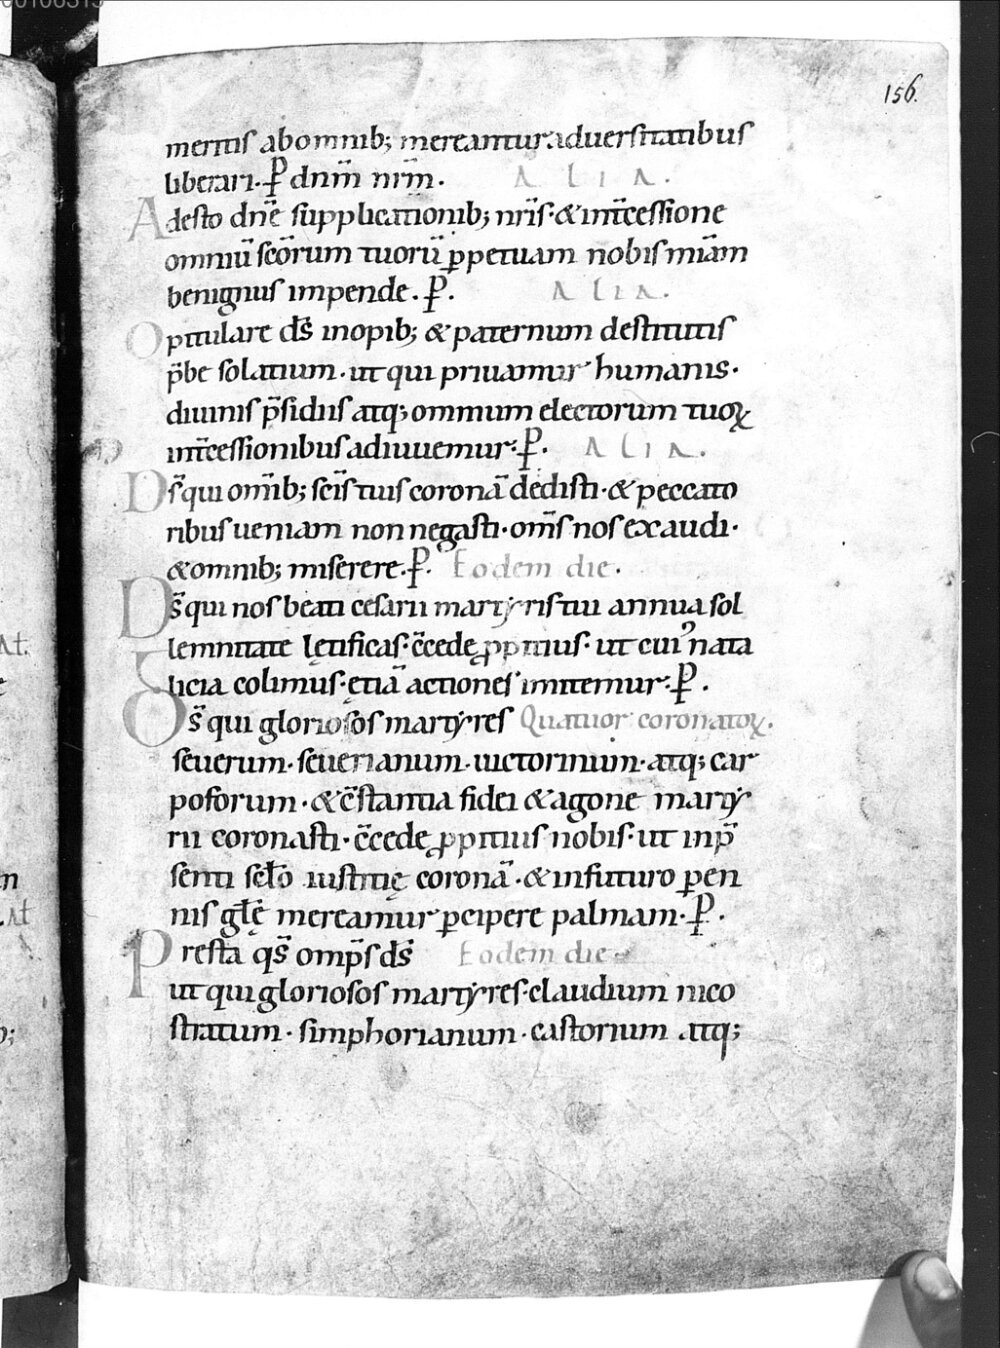 156.
meritis abomnib; mereantur aduersitatibus
liberari. P dnm̄ nrm̄. ALIA.
Adesto dnē supplicationib; nrīs· & int̄cessione
omniū scōrum tuorū ꝑpetuam nobis miām
benignus impende. P. ALIA.
Opitulare ds̄ inopib; & paternum destitutis
p̄be solatium· ut qui priuamur humanis·
diuinis p̄sidiis atq; omnium electorum tuoꝝ
int̄cessionibus adiuuemur: P. ALIA.
Ds̄ qui omīb; scīs tuis coronā dedisti· & peccato
ribus ueniam non negasti· om̄s nos exaudi·
& omnib; miserere. P. Eodem die.
Ds̄ qui nos beati cesarii martyris tui annua sol
lemnitate lętificas· c̄cede ꝓpitius· ut cuiꝰ nata
licia colimus· etiā actiones imitemur. P.
Ds̄ qui gloriosos martyres Quatuor coronatoꝝ.
seuerum· seuerianum· uictorinum· atq; car
poforum· & c̄stantia fidei & agone marty
rii coronasti· c̄cede ꝓpitius nobis· ut in p̄
senti sclō iustitię coronā· & in futuro ꝑen
nis glę̄ mereamur ꝑcipere palmam· P.
Presta qs̄ omp̄s ds̄ Eodem die
ut qui gloriosos martyres· claudium nico
stratum· simphorianum· castorium atq;